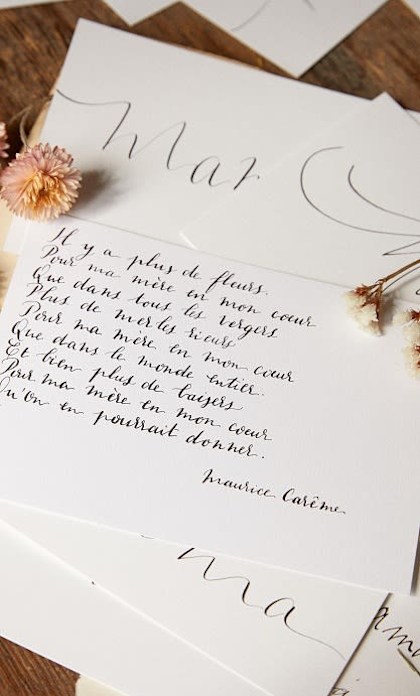 Mar
Il y a plus de fleurs
Pour ma mère en mon coeur
Que dans tous les vergers
Plus de merles rieurs
Pour ma mère en mon coeur
Que dans le monde entier.
Et bien plus de baisers
Pour ma mère en mon coeur
Qu'on en pourrait donner.
Maurice Carême
Ma